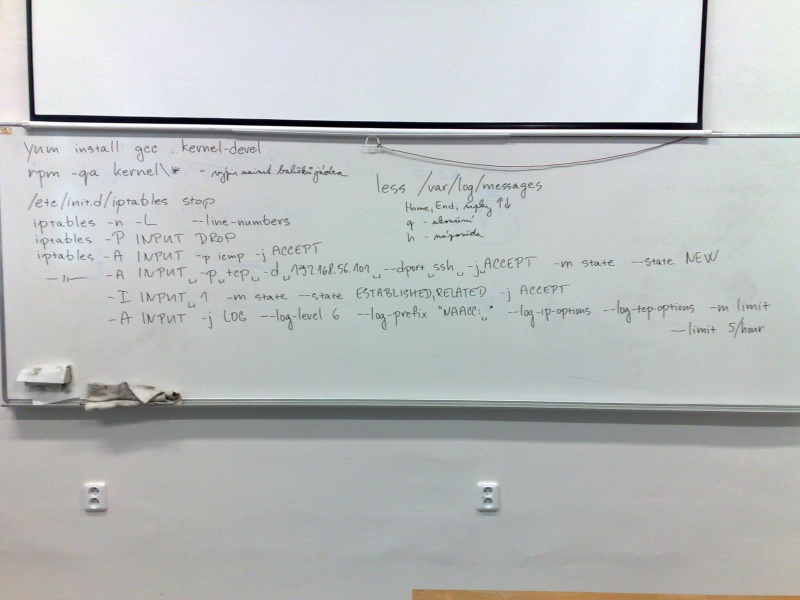 yum install gcc kernel-devel
rpm -qa kernel\* - výpis názvů balíčků jádra
less /var/log/messages
Home, End, šipky ↑↓
q - ukončení
h - nápověda
/etc/init.d/iptables stop
iptables -n -L --line-numbers
iptables -P INPUT DROP
iptables -A INPUT -p icmp -j ACCEPT
—"— -A INPUT␣-p␣tcp␣-d␣192.168.56.101␣--dport␣ssh␣-j␣ACCEPT -m state --state NEW
-I INPUT␣1 -m state --state ESTABLISHED,RELATED -j ACCEPT
-A INPUT -j LOG --log-level 6 --log-prefix "NAACC:␣" --log-ip-options --log-tcp-options -m limit
--limit 5/hour